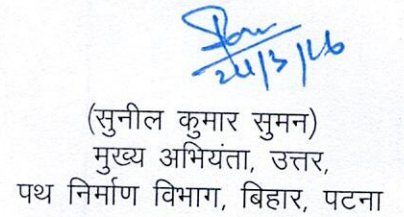 24/3/26
(सुनील कुमार सुमन)
मुख्य अभियंता, उत्तर,
पथ निर्माण विभाग, बिहार, पटना